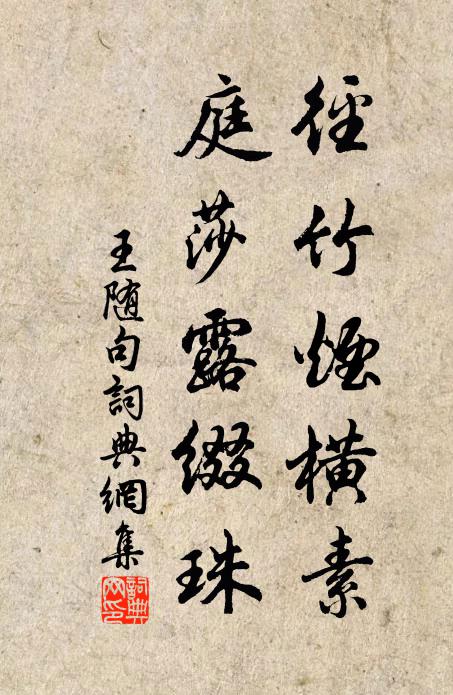 徑竹煙橫素
庭莎露綴珠
王随句詞典網集
詞典網印